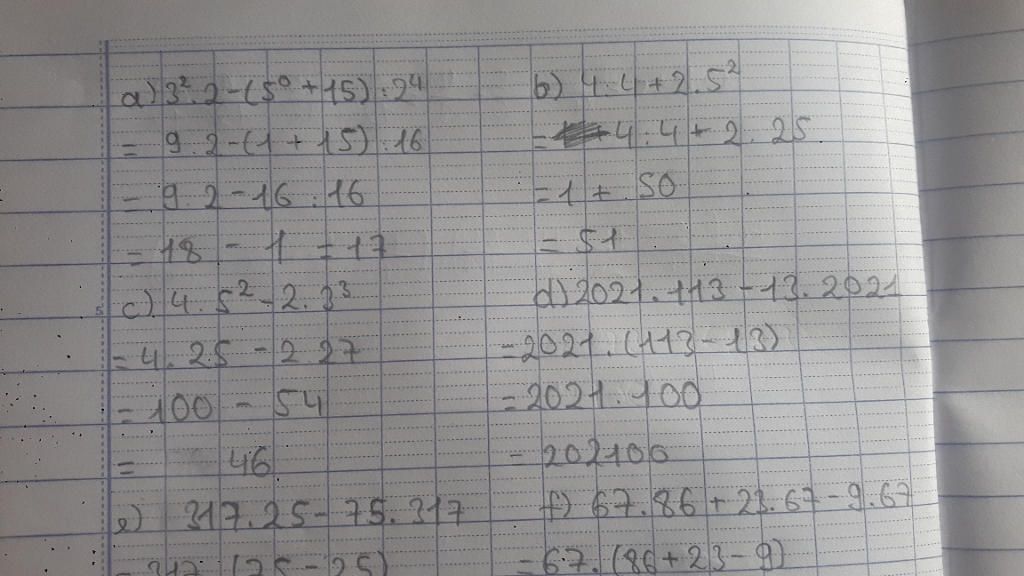 a) 3². 2 - (5⁰ + 15) : 2⁴
= 9. 2 - (1 + 15) : 16
= 9. 2 - 16 : 16
= 18 - 1 = 17
b) 4 : 4 + 2. 5²
= 4 : 4 + 2. 25
= 1 + 50
= 51
c) 4. 5² - 2. 3³
= 4. 25 - 2 27
= 100 - 54
= 46
d) 2021. 113 - 13. 2021
= 2021. (113 - 13)
= 2021. 100
= 202100
e) 317. 25 - 75. 317
f) 67. 86 + 23. 67 - 9. 67
= 67. (86 + 23 - 9)